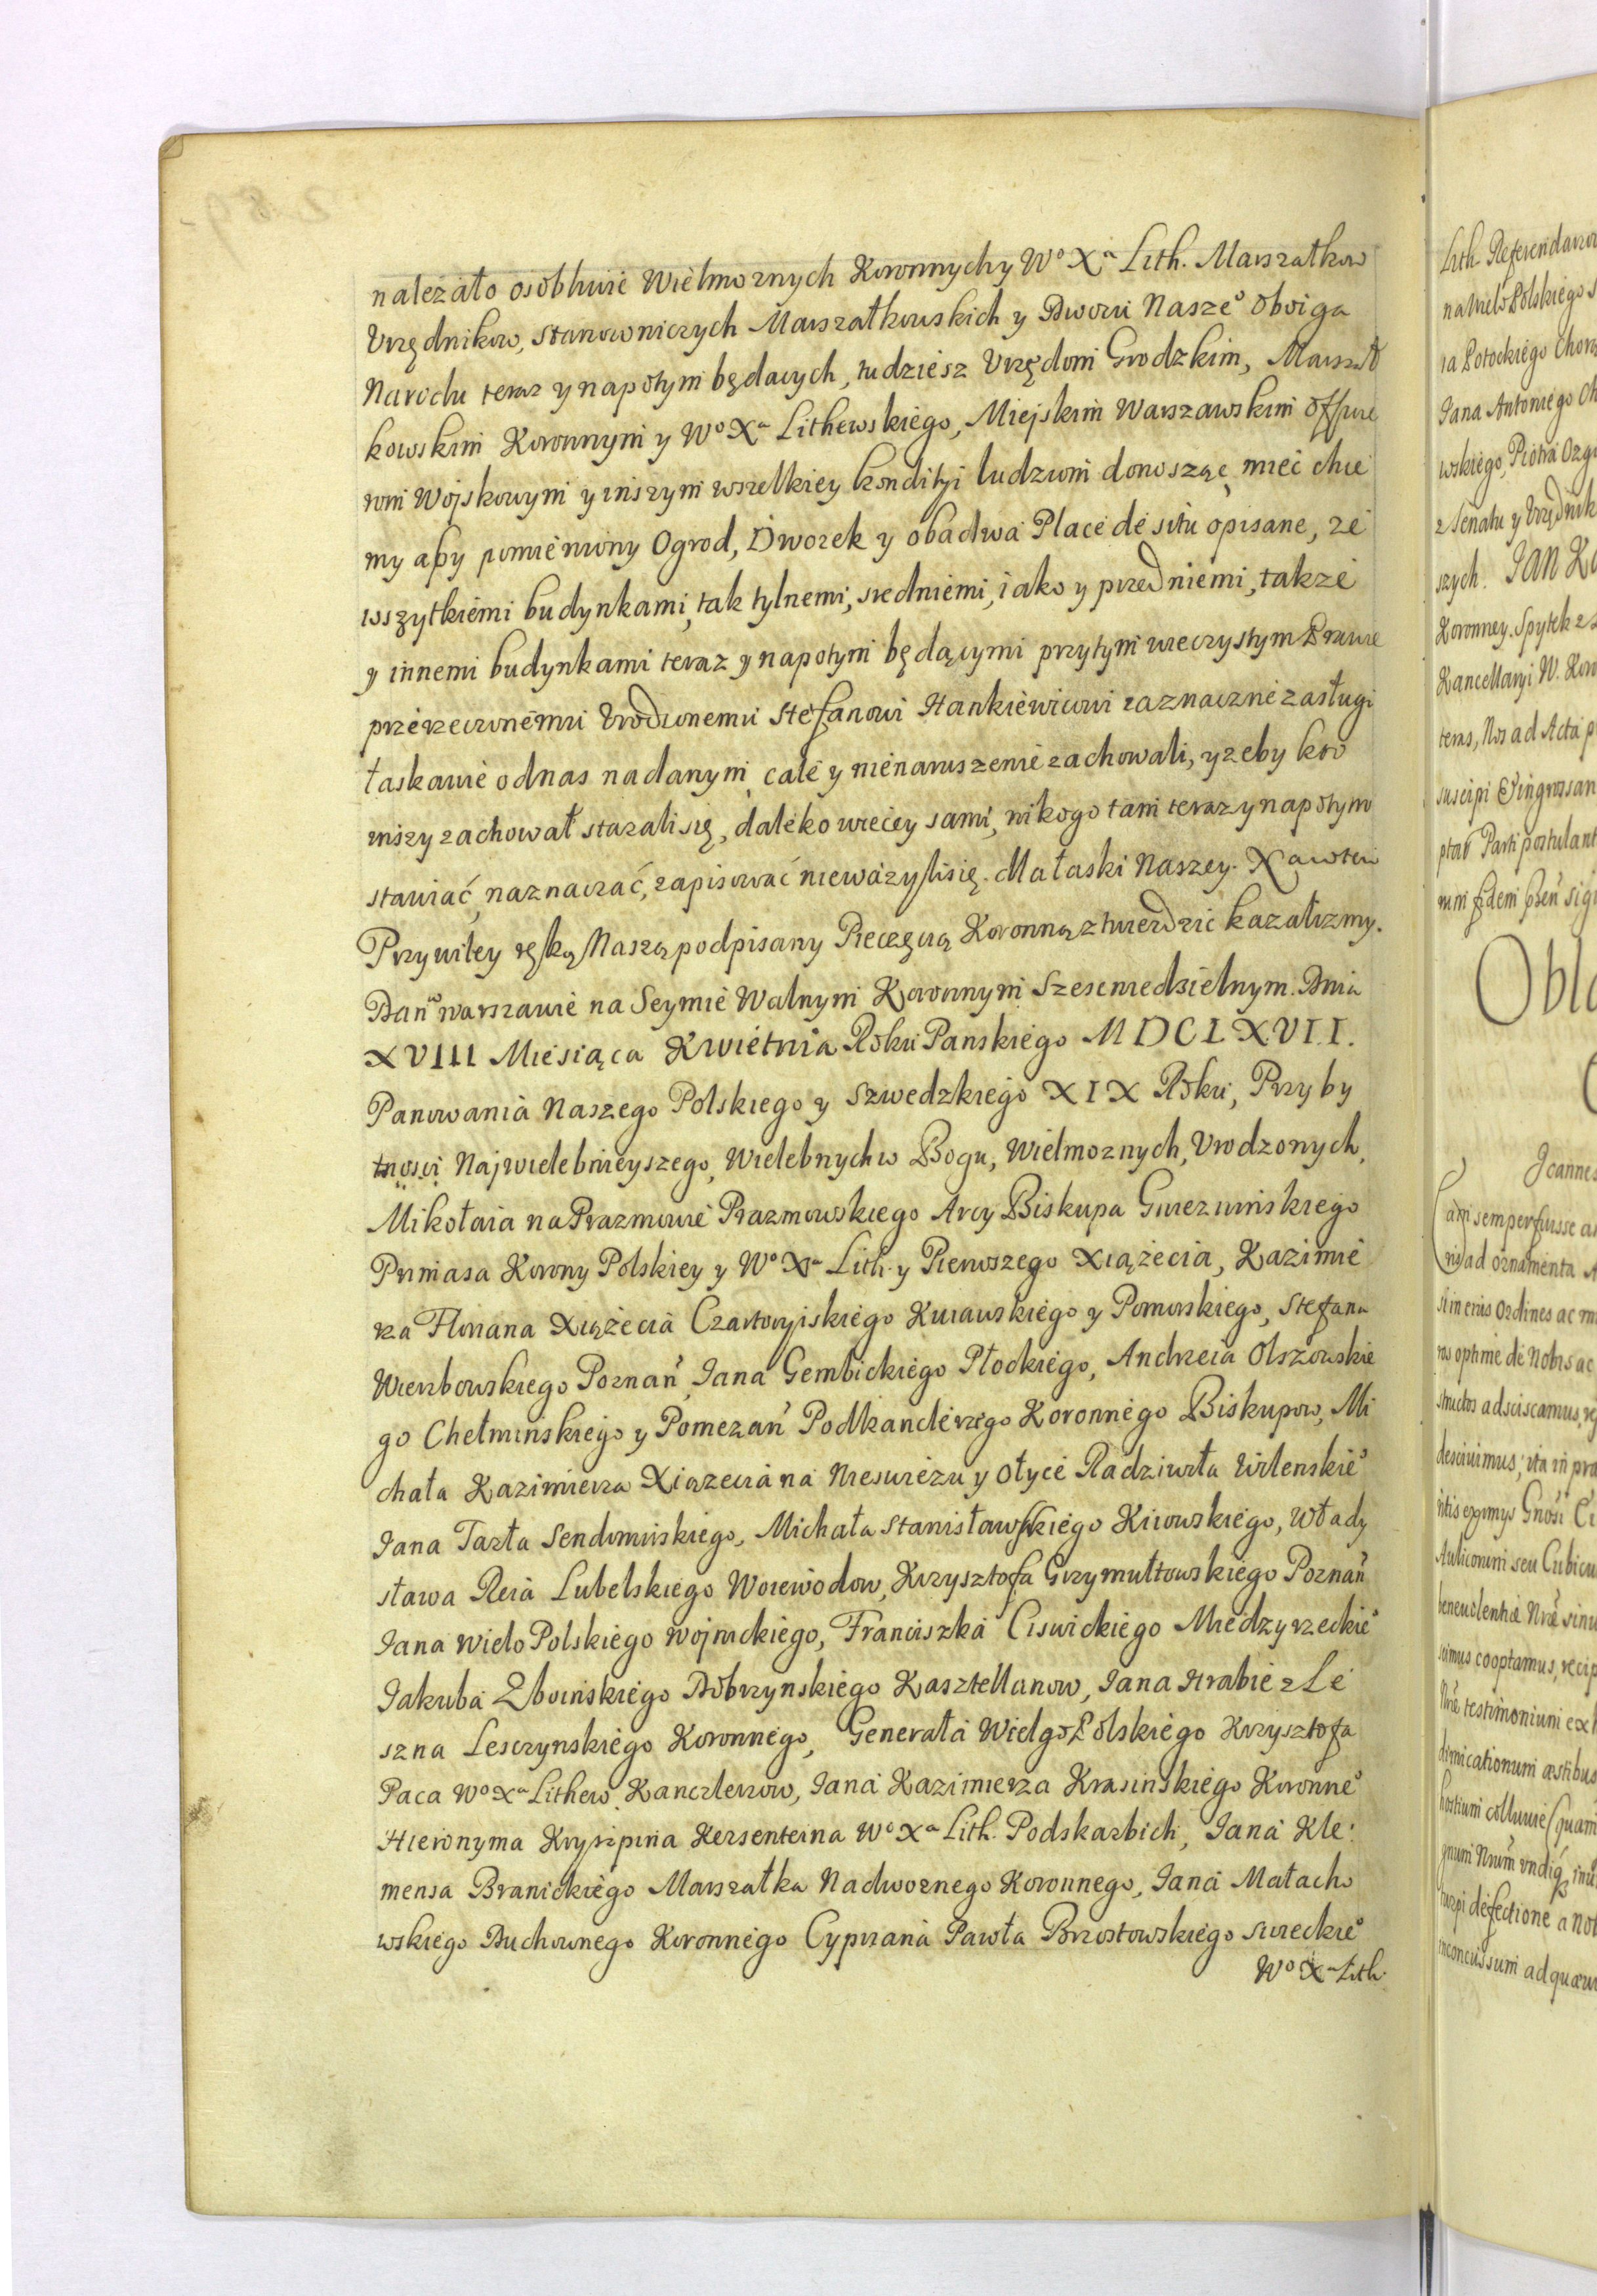 należało osobliwie Wielmoznych Koronnych y Wo Xa Lith. Marszałkow
Vrzędnikow, stanowniczych Marszałkowskich y Dworu Naszeo oboiga
Narodu teraz y napotym będacych, tudziesz Vrzędom Grodzkim, Marszał
kowskim Koronnym y Wo Xa Lithewskiego, Miejskim Warszawskim Offycie
rom Wojskowym y inszym wszelkiey kondityi ludziom donosząc, miec chce
my aby pomieniony Ogrod, Dworek y obadwa Place de situ opisane, ze
wszytkiemi budynkami, tak tylnemi, sredniemi, iako y przedniemi, takze
y innemi budynkami teraz y napotym będącymi przytym wieczystym Prawie
przerzeczonemu Vrodzonemu Stefanowi Hankiewiczowi za znaczne zasługi
łaskawie od nas nadanym, cale y nienaruszenie zachowali, y zeby kto
inszy zachował starali się, daleko więcey sami, nikogo tam teraz y napotym
stawiać, naznaczać, zapisować nieważyli się. Dla łaski Naszey. Xa wten
Przywiley ręką Naszą podpisany Pieczęcią Koronną ztwierdzic kazalizmy.
Dan w Warszawie na Seymie Walnym Koronnym Szescniedzielnym. Dnia
XVIII Miesiąca Kwietnia Roku Panskiego MDCLXVII.
Panowania Naszego Polskiego y Szwedzkiego XIX Roku, Przy by
tnosci Najwielebnieyszego, Wielebnych w Bogu, Wielmoznych, Vrodzonych,
Mikołaia na Prazmowie Prazmowskiego Arcy Biskupa Gniezninskiego
Primasa Korony Polskiey y Wo Xa Lith. y Pierwszego Xiążecia, Kazimie
rza Floriana Xiążecia Czartoryiskiego Kuiawskiego y Pomorskiego, Stefana
Wierzbowskiego Poznan, Jana Gembickiego Płockiego, Andrzeia Olszowskie
go Chełminskiego y Pomezan Podkanclerzego Koronnego Biskupow, Mi
chała Kazimierza Xiązecia na Nieswiezu y Ołyce Radziwiła Wilenskieo
Jana Tarła Sendomirskiego, Michała Stanisławskiego Kiiowskiego, Włady
sława Reia Lubelskiego Woiewodow, Krzysztofa Grzymułtowskiego Poznan
Jana Wielo Polskiego Wojnickiego, Franciszka Ciswickiego Miedzyrzeckieo
Jakuba Zboinskiego Dobrzynskiego Kasztellanow, Jana Hrabie z Le
szna Lesczynskiego Koronnego, Generała Wielgo Polskiego Krzysztofa
Paca Wo Xa Lithew. Kanczlerzow, Jana Kazimierza Krasinskiego Koronneo
Hieronyma Kryszpina Kersenteina Wo Xa Lith. Podskarbich, Jana Kle:
mensa Branickiego Marszałka Nadwornego Koronnego, Jana Małacho
wskiego Duchownego Koronnego Cypriana Pawła Brzostowskiego Swieckieo
Wo Xa Lith.
Lith. Referendarzow
na Wielo Polskiego
ia Potockiego Chor
Jana Antoniego Ch
wskiego, Piotra Ozg
z Senatu y Vrzędnik
szych. JAN KA
Koronney. Spytek z
Kancellaryi W. Kor
tens, Nos ad Acta p
suscipi & ingrossan
ptas Parti postulant
Obla
Joannes
semper fuisse
ad ornamenta
ordines ac
optime de Nobis ac
adsciscamus
Cubicu
cooptamus, recip
testimonium ex
dimicationum æstibus
hostium colluvie (quam
defectione a nob
inconcussum ad quæ